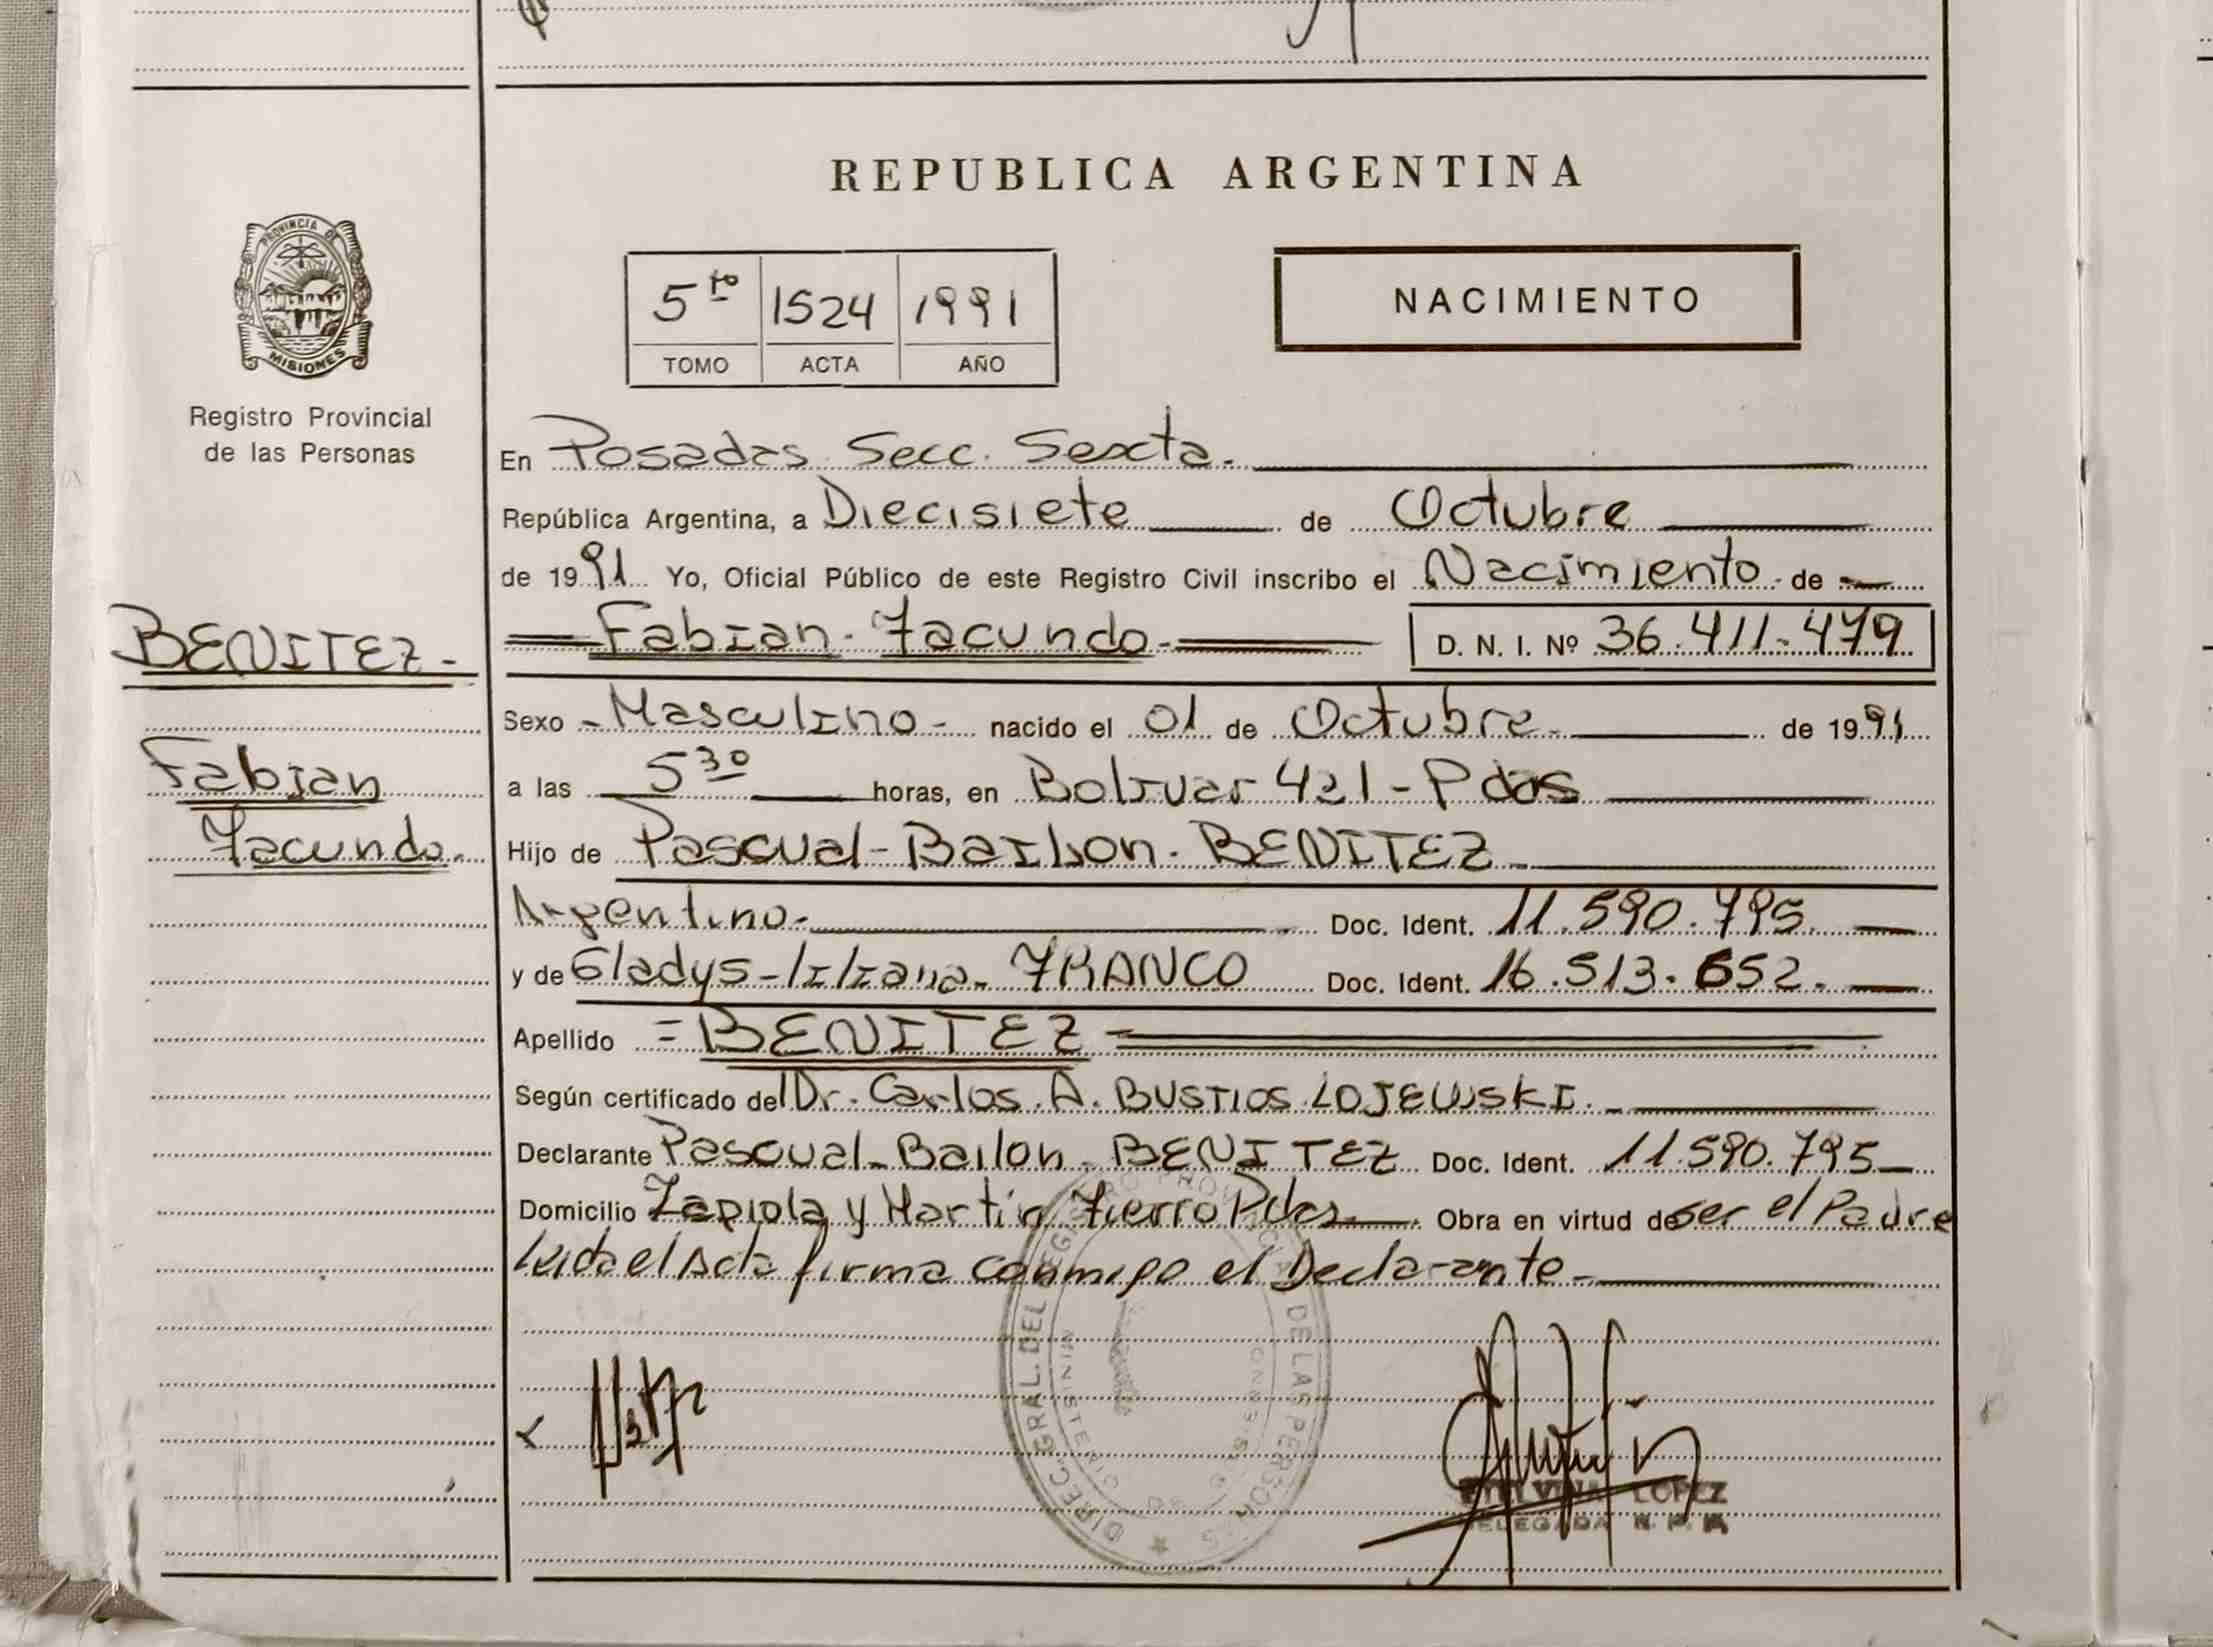 REPUBLICA ARGENTINA
PROVINCIA DE
MISIONES
Registro Provincial
de las Personas
5to 1524 1991
TOMO ACTA AÑO
NACIMIENTO
En Posadas Secc. Sexta.
República Argentina, a Diecisiete de Octubre
de 1991 Yo, Oficial Público de este Registro Civil inscribo el Nacimiento de
BENITEZ
Fabian Facundo
Fabian Facundo D. N. I. Nº 36.411.479
Sexo Masculino nacido el 01 de Octubre de 1991
a las 5 30 horas, en Bolivar 421 - Pdas
Hijo de Pascual Bailon BENITEZ
Argentino Doc. Ident. 11.590.795
y de Gladys Liliana FRANCO Doc. Ident. 16.513.652
Apellido BENITEZ
Según certificado del Dr. Carlos A. BUSTIOS LOJEWSKI
Declarante Pascual Bailon BENITEZ Doc. Ident. 11.590.795
Domicilio Zapiola y Martin Fierro Pdas Obra en virtud de ser el Padre
Leida el Acta firma conmigo el Declarante
DIREC. GRAL. DEL REGISTRO PROVINCIAL DE LAS PERSONAS
LOPEZ
DELEGADA R. P. P.